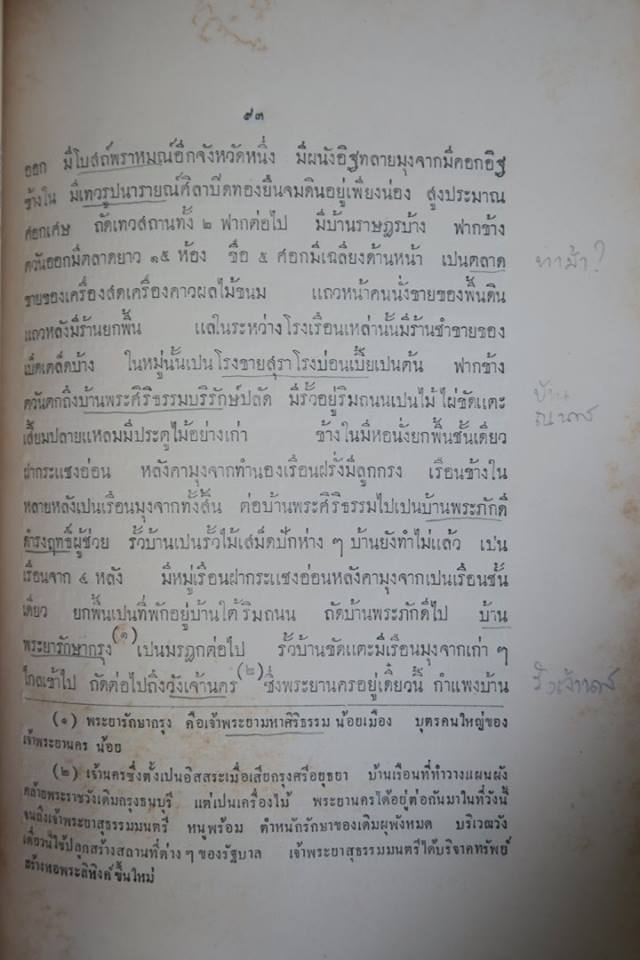 ๙๓
ออก มีโบสถ์พราหมณ์อีกจังหวัดหนึ่ง มีผนังอิฐหลายมุงจากมีคอกอิฐ
ข้างใน มีเทวรูปนารายณ์ศิลาปิดทองยืนจมดินอยู่เพียงน่อง สูงประมาณ
ศอกเศษ ถัดเทวสถานทั้ง ๒ ฟากต่อไป มีบ้านราษฎรบ้าง ฟากข้าง
ตวันออกมีตลาดยาว ๑๕ ห้อง ขื่อ ๕ ศอกมีเฉลียงด้านหน้า เปนตลาด
ขายของเครื่องสดเครื่องคาวผลไม้ขนม แถวหน้าคนนั่งขายของพื้นดิน
แถวหลังมีร้านยกพื้น แลในระหว่างโรงเรือนเหล่านั้นมีร้านชำขายของ
เบ็ดเตล็ดบ้าง ในหมู่นั้นเปนโรงขายสุราโรงบ่อนเบี้ยเปนต้น ฟากข้าง
ตวันตกถึงบ้านพระศิริธรรมบริรักษ์ปลัด มีรั้วอยู่ริมถนนเปนไม้ไผ่ขัดแตะ
เสี้ยมปลายแหลมมีประตูไม้อย่างเก่า ข้างในมีหอนั่งยกพื้นชั้นเดียว
ฝากระแชงอ่อน หลังคามุงจากทำนองเรือนฝรั่งมีลูกกรง เรือนข้างใน
หลายหลังเปนเรือนมุงจากทั้งสิ้น ต่อบ้านพระศิริธรรมไปเปนบ้านพระภักดี
ดำรงฤทธิ์ผู้ช่วย รั้วบ้านเปนรั้วไม้เสม็ดปักห่าง ๆ บ้านยังทำไม่แล้ว เปน
เรือนจาก ๔ หลัง มีหมู่เรือนฝากระแชงอ่อนหลังคามุงจากเปนเรือนชั้น
เดียว ยกพื้นเปนที่พักอยู่บ้านใต้ริมถนน ถัดบ้านพระภักดีไป บ้าน
พระยารักษากรุง(๑)เปนมรฎกต่อไป รั้วบ้านขัดแตะมีเรือนมุงจากเก่า ๆ
ไกลเข้าไป ถัดต่อไปถึงวังเจ้านคร(๒)ซึ่งพระยานครอยู่เดี๋ยวนี้ กำแพงบ้าน
(๑) พระยารักษากรุง คือเจ้าพระยามหาศิริธรรม น้อยเมือง บุตรคนใหญ่ของ
เจ้าพระยานคร น้อย
(๒) เจ้านครซึ่งตั้งเปนอิสสระเมื่อเสียกรุงศรีอยุธยา บ้านเรือนที่ทำวางแผนผัง
คล้ายพระราชวังเดิมกรุงธนบุรี แต่เปนเครื่องไม้ พระยานครได้อยู่ต่อกันมาในที่วังนี้
จนถึงเจ้าพระยาสุธรรมมนตรี หนูพร้อม ตำหนักรักษาของเดิมผุพังหมด บริเวณวัง
เดี๋ยวนี้ใช้ปลูกสร้างสถานที่ต่าง ๆ ของรัฐบาล เจ้าพระยาสุธรรมมนตรีได้บริจาคทรัพย์
สร้างหอพระสิหิงค์ขึ้นใหม่
ท่าม้า?
บ้าน
ณ นคร